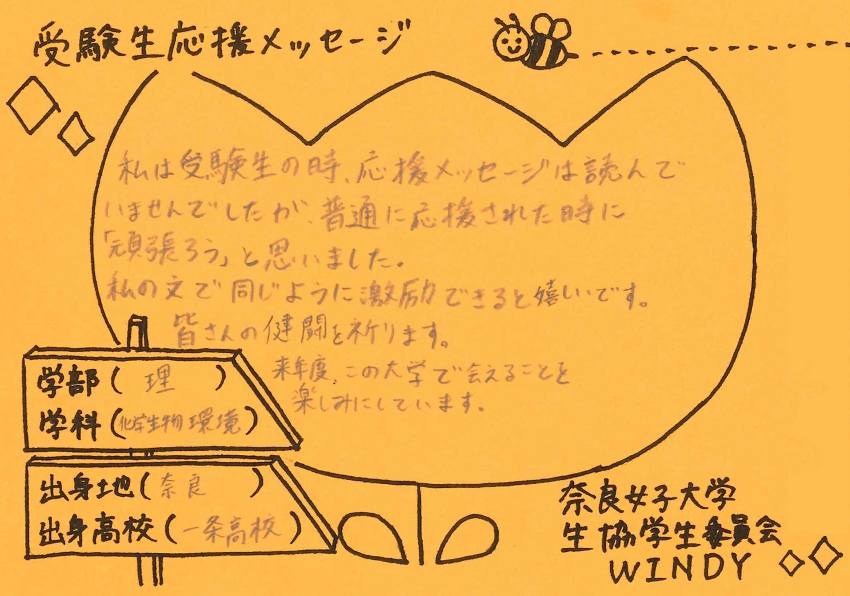 受験生応援メッセージ
私は受験生の時、応援メッセージは読んで
いませんでしたが、普通に応援された時に
「頑張ろう」と思いました。
私の文で同じように激励できると嬉しいです。
皆さんの健闘を祈ります。
来年度、この大学で会えることを
楽しみにしています。
学部(理)
学科(化学生物環境)
出身地(奈良)
出身高校(一条高校)
奈良女子大学
生協学生委員会
WINDY